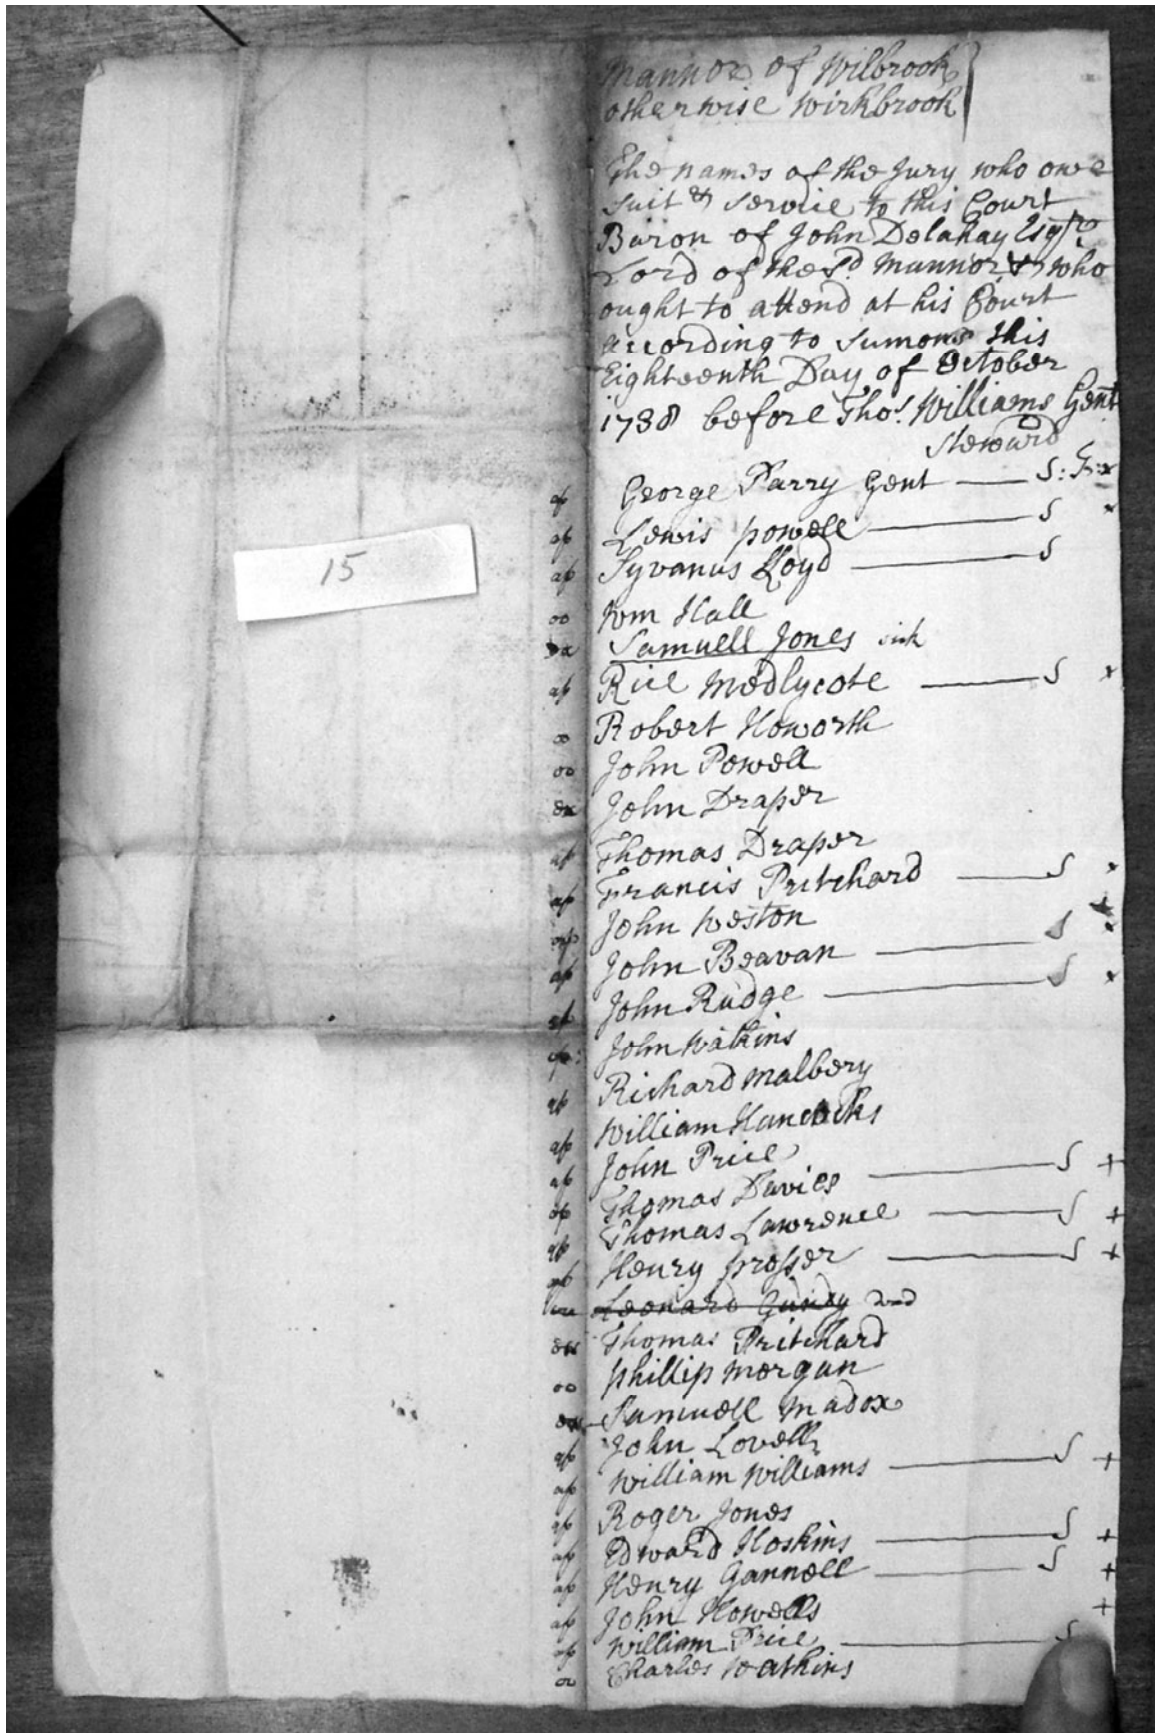 Mannor of Wilbrook
otherwise Wirkbrook
The names of the Jury who owe
suit & Service to this Court
Baron of John Delahay Esqr.
Lord of the Sd. Mannor & who
ought to attend at his Court
according to Sumons this
Eighteenth Day of October
1738 before Thos. Williams Gent
Steward
ap George Parry Gent — S: F: x
ap Lewis powell — S x
ap Sylvanus Lloyd — S
oo Wm Hall
Samuell Jones sick
ap Rice Medlycote — S x
oo Robert Howorth
oo John Powell
John Draper
ap Thomas Draper
ap Francis Pritchard — S x
15
John Weston
ap John Beavan — S x
John Rudge — S x
John Watkins
ap Richard Malbery
ap William Hancocks
ap John Price
ap Thomas Davies — S +
ap Thomas Lawrence — S +
ap Henry prosser — S +
Leonard Gundy
Thomas Pritchard
oo phillip morgan
Samuell Madox
ap John Lovell
ap William Williams — S +
ap Roger Jones
ap Edward Hoskins — S +
ap Henry Gannell — S +
ap John Howells +
ap William Price — S
oo Charles Watkins